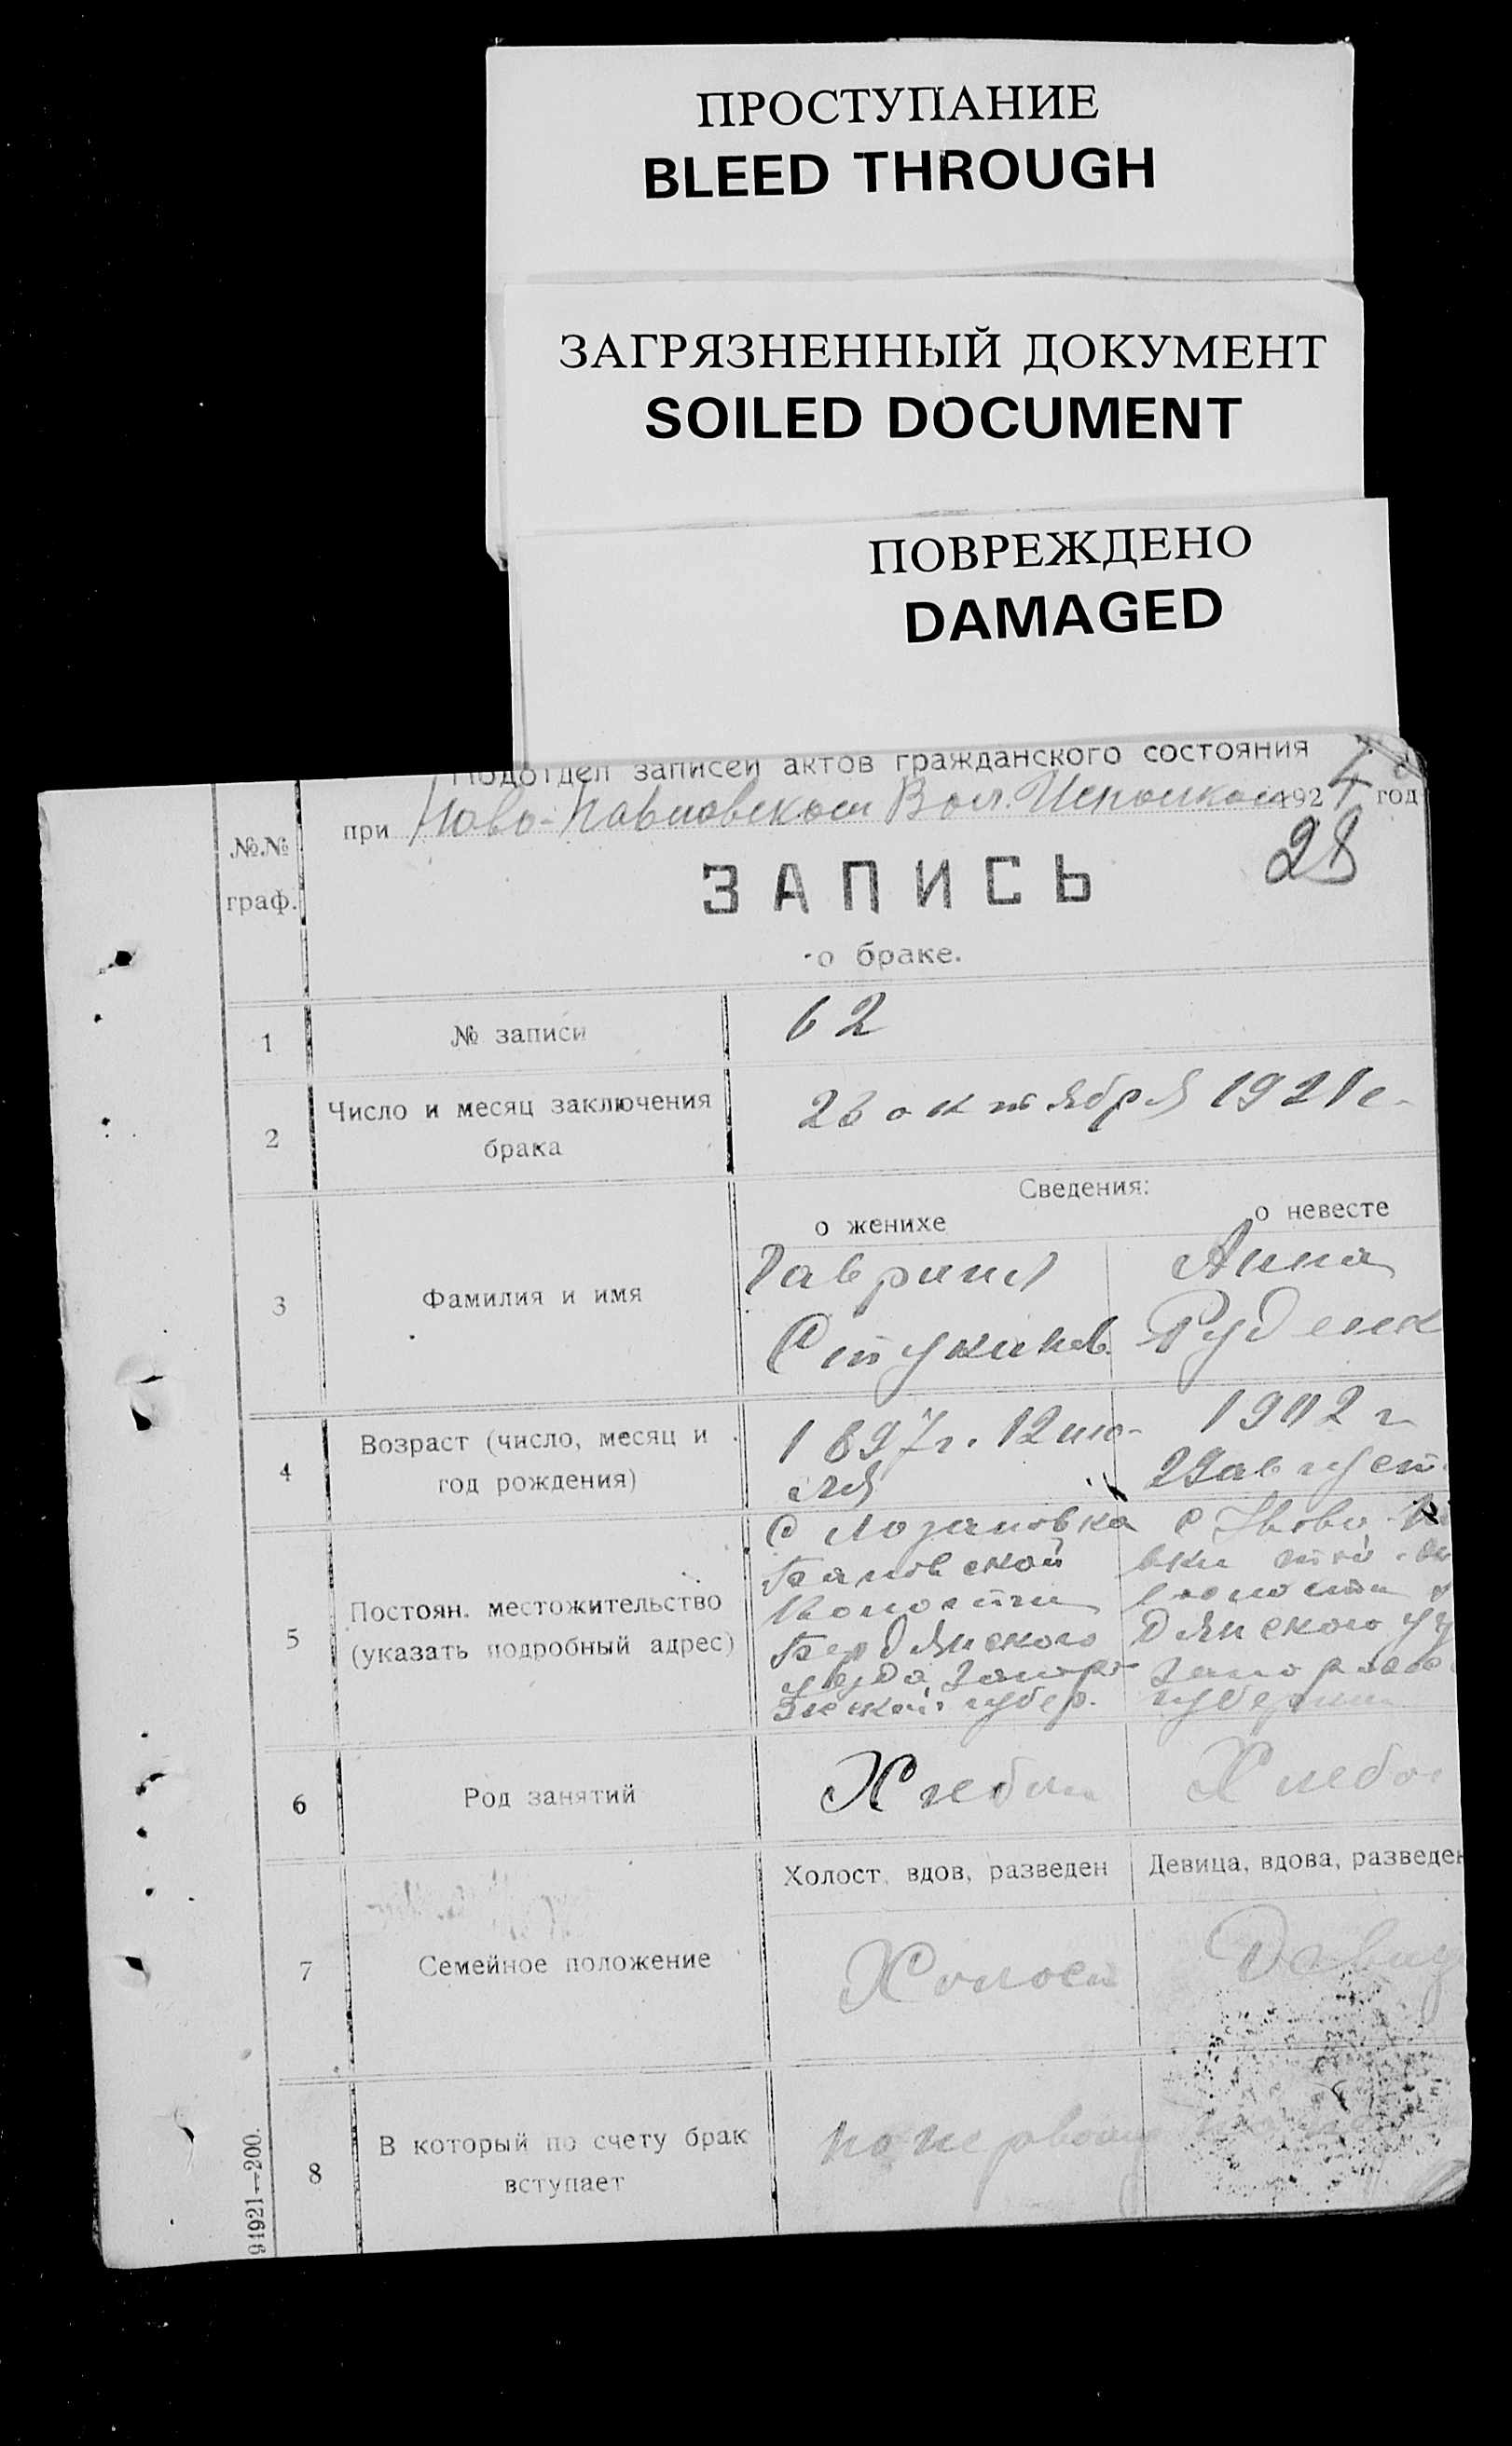 ПРОСТУПАНИЕ
BLEED THROUGH
ЗАГРЯЗНЕННЫЙ ДОКУМЕНТ
SOILED DOCUMENT
ПОВРЕЖДЕНО
DAMAGED
Подотдел записей актов гражданского состояния
при Ново-Павловском Вол. Исполкоме 192 год
28
№№
граф.
ЗАПИСЬ
о браке.
1 № записи 62
2 Число и месяц заключения
брака
октября 1921 г.
Сведения:
о женихе о невесте
3 Фамилия и имя
Гавриил Анна
Руденк
4 Возраст (число, месяц и
год рождения)
1897г. 12 ию- 1902 г
ля август
5 Постоян. местожительство
(указать подробный адрес)
С Лозановка с Ново
вки той
Волости волости
Бердянского дянского у
уезда Запоро
жской губер. губернии
6 Род занятий
7 Семейное положение
Холост, вдов, разведен Девица, вдова, разведен
Холост Девиц
8 В который по счету брак
вступает
по первому
91921—200.